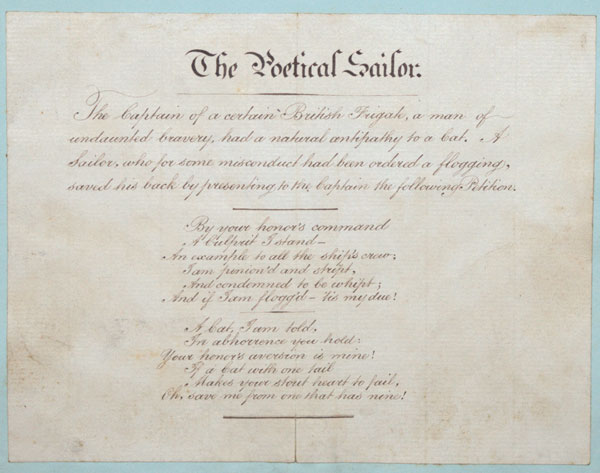 The Poetical Sailor.
The Captain of a certain British Frigate, a man of
undaunted bravery, had a natural antipathy to a Cat. A
Sailor, who for some misconduct had been ordered a flogging,
saved his back by presenting to the Captain the following Petition.
By your honor's command
A Culprit I stand –
An example to all the ship's crew;
I am penion'd and stript,
And condemned to be whipt;
And if I am flogg'd – 'tis my due!
A Cat, I am told,
In abhorrence you hold:
Your honor's aversion is mine!
If a Cat with one tail
Makes your stout heart to fail,
Oh, save me from one that has nine!